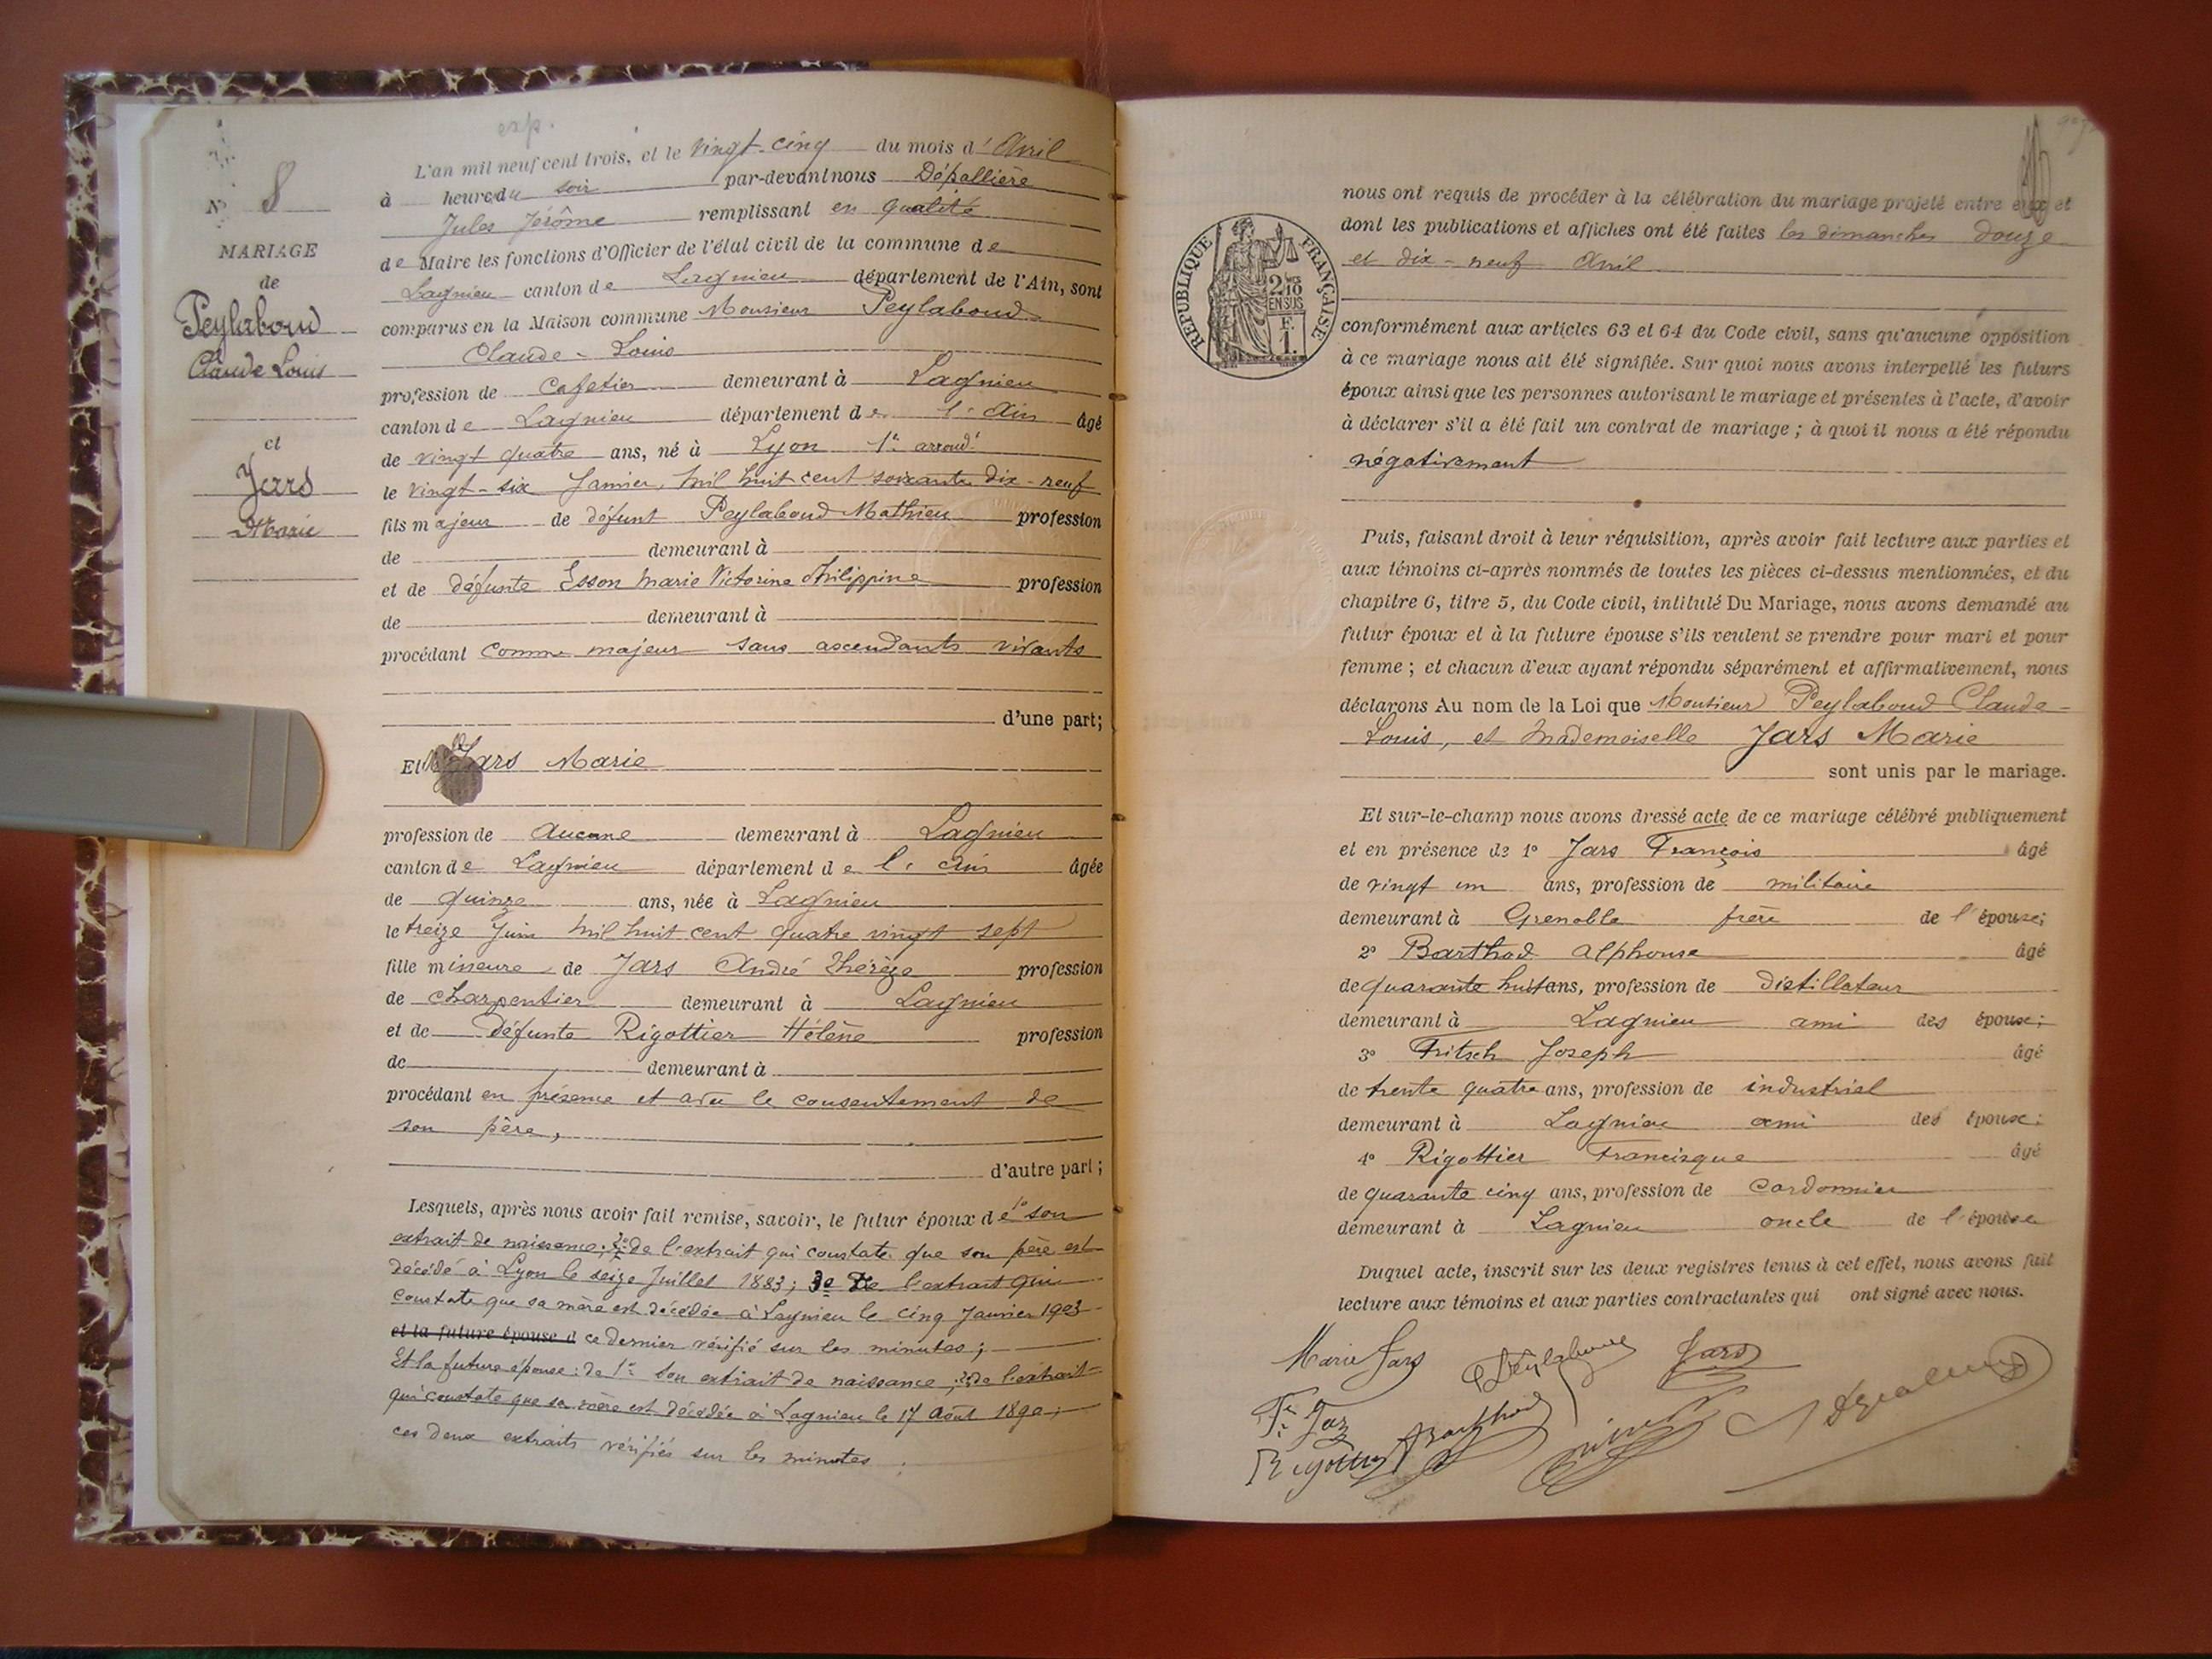 exp.
N° 8
MARIAGE
de
Peylaboud
Claude Louis
et
Jars
Marie
L'an mil neuf cent trois, et le vingt-cinq du mois d'Avril
à heure du soir par-devant nous Dépallière
Jules Jérôme remplissant en qualité
de Maire les fonctions d'Officier de l'état civil de la commune de
Lagnieu canton de Lagnieu département de l'Ain, sont
comparus en la Maison commune Monsieur Peylaboud
Claude-Louis
profession de Cafetier demeurant à Lagnieu
canton de Lagnieu département de l'Ain âgé
de vingt quatre ans, né à Lyon 1er arrondt
le vingt-six Janvier, mil huit cent soixante dix-neuf
fils majeur de défunt Peylaboud Mathieu profession
de demeurant à
et de défunte Esson Marie Victorine Philippine profession
de demeurant à
procédant comme majeur sans ascendants vivants
d'une part;
Et Jars Marie
profession de aucune demeurant à Lagnieu
canton de Lagnieu département de l'Ain âgée
de quinze ans, née à Lagnieu
le treize Juin mil huit cent quatre vingt sept
fille mineure de Jars André Thérèze profession
de charpentier demeurant à Lagnieu
et de défunte Rigottier Hélène profession
de demeurant à
procédant en présence et avec le consentement de
son père,
d'autre part;
Lesquels, après nous avoir fait remise, savoir, le futur époux de 1° son
extrait de naissance; 2° de l'extrait qui constate que son père est
décédé à Lyon le seize Juillet 1883; 3e De l'extrait qui
constate que sa mère est décédée à Lagnieu le cinq Janvier 1903
et la future épouse d ce dernier vérifié sur les minutes;
Et la future épouse: de 1° son extrait de naissance; 2° de l'extrait
qui constate que sa mère est décédée à Lagnieu le 17 Août 1890;
ces deux extraits vérifiés sur les minutes
nous ont requis de procéder à la célébration du mariage projeté entre eux et
dont les publications et affiches ont été faites les dimanches douze
et dix-neuf Avril
REPUBLIQUE FRANÇAISE
2/10
EN SUS
F.
1.
conformément aux articles 63 et 64 du Code civil, sans qu'aucune opposition
à ce mariage nous ait été signifiée. Sur quoi nous avons interpellé les futurs
époux ainsi que les personnes autorisant le mariage et présentes à l'acte, d'avoir
à déclarer s'il a été fait un contrat de mariage; à quoi il nous a été répondu
négativement
Puis, faisant droit à leur réquisition, après avoir fait lecture aux parties et
aux témoins ci-après nommés de toutes les pièces ci-dessus mentionnées, et du
chapitre 6, titre 5, du Code civil, intitulé Du Mariage, nous avons demandé au
futur époux et à la future épouse s'ils veulent se prendre pour mari et pour
femme; et chacun d'eux ayant répondu séparément et affirmativement, nous
déclarons Au nom de la Loi que Monsieur Peylaboud Claude-
Louis, et Mademoiselle Jars Marie
sont unis par le mariage.
Et sur-le-champ nous avons dressé acte de ce mariage célébré publiquement
et en présence de 1° Jars François âgé
de vingt un ans, profession de militaire
demeurant à Grenoble frère de l'épouse;
2° Barthod Alphonse âgé
de quarante huit ans, profession de distillateur
demeurant à Lagnieu ami des époux;
3° Fritsch Joseph âgé
de trente quatre ans, profession de industriel
demeurant à Lagnieu ami des époux;
4° Rigottier Francisque âgé
de quarante cinq ans, profession de Cordonnier
demeurant à Lagnieu oncle de l'épouse
Duquel acte, inscrit sur les deux registres tenus à cet effet, nous avons fait
lecture aux témoins et aux parties contractantes qui ont signé avec nous.
Marie Jars Peylaboud Jars
Rigottier Barthod